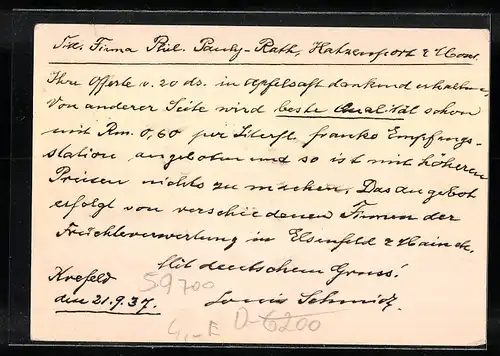 Firma Phil. Pauly-Rath, Hatzenport a/Mosel
Ihre Offerte v. 20 ds. in Apfelsaft dankend erhalten,
Von anderer Seite wird beste Qualität schon
mit Rm. 0,60 per Literfl. franko Empfangs-
station, angeboten und so ist mit höheren
Preisen nichts zu machen. Das Angebot
erfolgt von verschiedenen Firmen der
Früchteverwertung in Elsenfeld a/Main
Mit deutschem Gruss!
Krefeld
den 21.9.37.
Louis Schmitz.
59700
4,-E D-6200